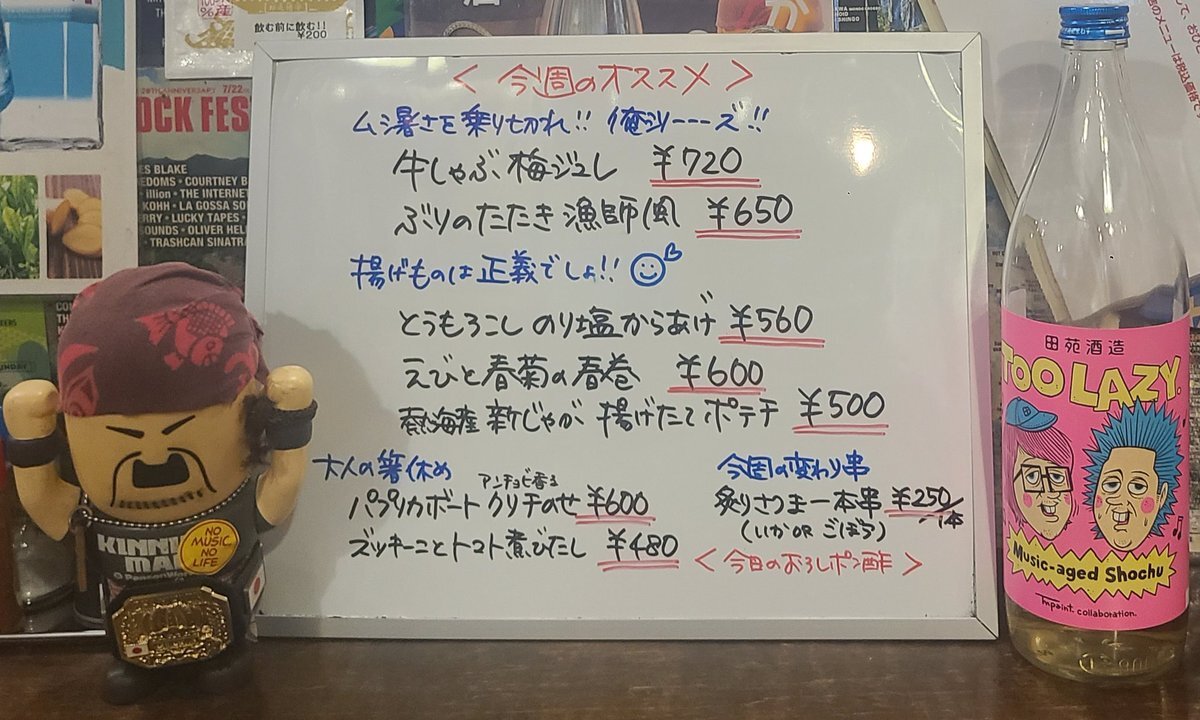 飲む前に飲む!!
¥200
20TH ANNIVERSARY 7/22
OCK FES
ES BLAKE
EDOMS・COURTNEY B
illion・THE INTERNET
KOHH・LA GOSSA SO
RRY・LUCKY TAPES・
SOUNDS・OLIVER HEL
TRASHCAN SINATRA
<今週のオススメ>
ムシ暑さを乗りきれ!! 俺シリーーーズ!!
牛しゃぶ梅ジュレ ¥720
ぶりのたたき漁師風 ¥650
揚げものは正義でしょ!!
とうもろこし のり塩からあげ ¥560
えびと春菊の春巻 ¥600
熱海産 新じゃが 揚げたてポテチ ¥500
大人の箸休め
アンチョビ香る
パプリカボート クリチのせ ¥600
ズッキーニとトマト煮びたし ¥480
今週の変わり串
炙りさつま一本串 ¥250/1本
(いか OR ごぼう)
<今日のおろしポン酢>
NO
MUSIC
NO
LIFE
KINNI
MA
田苑酒造
TOO LAZY.
Music-aged Shochu
Tmpaint collaboration.